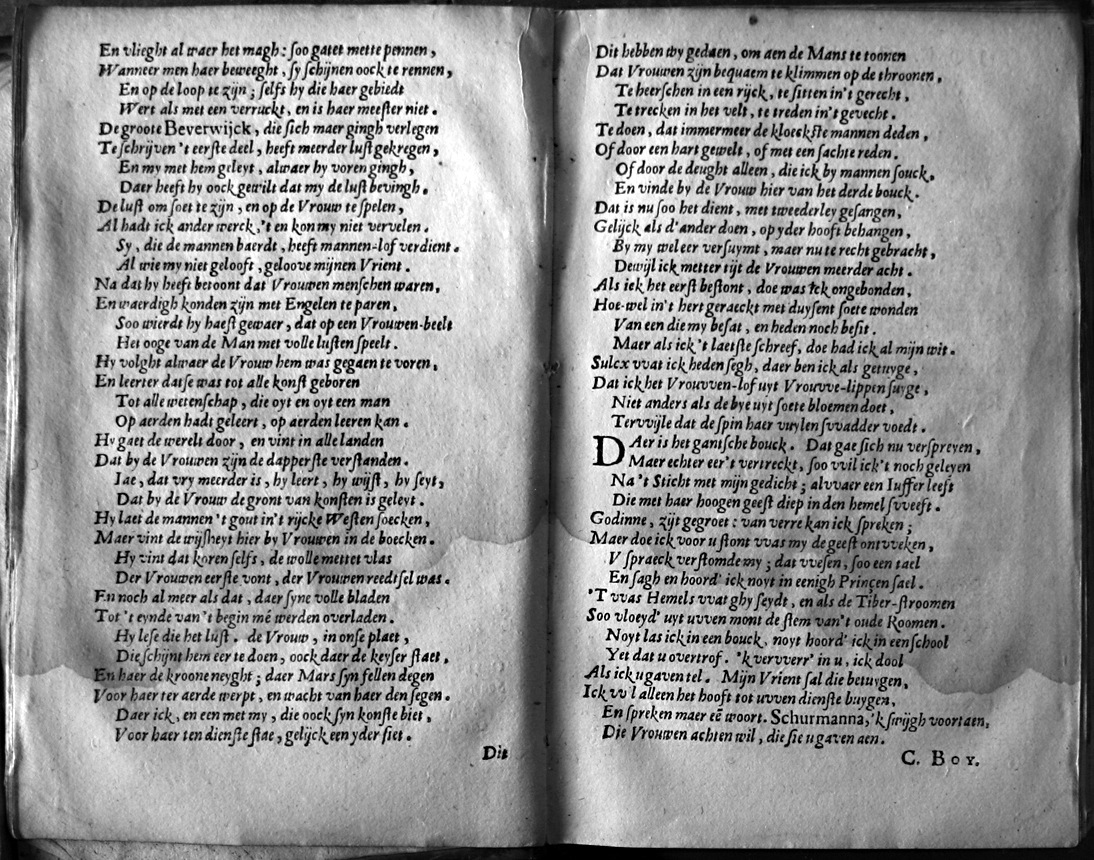 En vlieght al waer het magh: soo gatet mette pennen,
Wanneer men haer beweeght, sy schijnen oock te rennen,
En op de loop te zijn; selfs hy die haer gebiedt
Wert als met een verruckt, en is haer meester niet.
De groote Beverwijck, die sich maer gingh verlegen
Te schrijven 't eerste deel, heeft meerder lust gekregen,
En my met hem geleyt, alwaer hy voren gingh,
Daer heeft hy oock gewilt dat my de lust bevingh.
De lust om soet te zijn, en op de Vrouw te spelen,
Al hadt ick ander werck, 't en kon my niet vervelen.
Sy, die de mannen baerdt, heeft mannen-lof verdient.
Al wie my niet gelooft, geloove mijnen Vrient.
Na dat hy heeft betoont dat Vrouwen menschen waren,
En waerdigh konden zijn met Engelen te paren,
Soo wierdt hy haest gewaer, dat op een Vrouwen-beelt
Het ooge van de Man met volle lusten speelt.
Hy volght alwaer de Vrouw hem was gegaen te voren,
En leerter datse was tot alle konst geboren
Tot alle wetenschap, die oyt en oyt een man
Op aerden hadt geleert, op aerden leeren kan.
Hy gaet de werelt door, en vint in alle landen
Dat by de Vrouwen zijn de dapperste verstanden.
Jae, dat vry meerder is, hy leert, hy wijst, hy seyt,
Dat by de Vrouw de gront van konsten is geleyt.
Hy laet de mannen 't gout in't rijcke Westen soecken,
Maer vint de wijsheyt hier by Vrouwen in de boecken.
Hy vint dat koren selfs, de wolle mettet vlas
Der Vrouwen eerste vont, der Vrouwen reedtsel was.
En noch al meer als dat, daer syne volle bladen
Tot 't eynde van 't begin mé werden overladen.
Hy lese die het lust. de Vrouw, in onse plaet,
Die schijnt hem eer te doen, oock daer de keyser staet,
En haer de kroone neyght; daer Mars syn fellen degen
Voor haer ter aerde werpt, en wacht van haer den segen.
Daer ick, en een met my, die oock syn konste biet,
Voor haer ten dienste stae, gelijck een yder siet.
Dit
Dit hebben wy gedaen, om aen de Mans te toonen
Dat Vrouwen zijn bequaem te klimmen op de throonen,
Te heerschen in een rijck, te sitten in't gerecht,
Te trecken in het velt, te treden in't gevecht.
Te doen, dat immermeer de kloeckste mannen deden,
Of door een hart gewelt, of met een sachte reden.
Of door de deught alleen, die ick by mannen souck,
En vinde by de Vrouw hier van het derde bouck.
Dat is nu soo het dient, met tweederley gesangen,
Gelijck als d'ander doen, op yder hooft behangen,
By my wel eer versuymt, maer nu te recht gebracht,
Dewijl ick metter tijt de Vrouwen meerder acht.
Als ick het eerst bestont, doe was ick ongebonden,
Hoe-wel in't hert geraeckt met duysent soete wonden
Van een die my besat, en heden noch besit.
Maer als ick 't laetste schreef, doe had ick al mijn wit.
Sulcx vvat ick heden segh, daer ben ick als getuyge,
Dat ick het Vrouvven-lof uyt Vrouvve-lippen suyge,
Niet anders als de bye uyt soete bloemen doet,
Tervvijle dat de spin haer vuylen svvadder voedt.
DAer is het gantsche bouck. Dat gae sich nu verspreyen,
Maer echter eer't vertreckt, soo vvil ick't noch geleyen
Na 't Sticht met mijn gedicht; alvvaer een Iuffer leeft
Die met haer hoogen geest diep in den hemel svveeft.
Godinne, zijt gegroet: van verre kan ick spreken;
Maer doe ick voor u stont vvas my de geest ontvveken,
V spraeck verstomde my; dat vvesen, soo een tael
En sagh en hoord' ick noyt in eenigh Prinçen sael.
'T vvas Hemels vvat ghy seydt, en als de Tiber-stroomen
Soo vloeyd' uyt uvven mont de stem van't oude Roomen.
Noyt las ick in een bouck, noyt hoord' ick in een school
Yet dat u overtrof. 'k vervverr' in u, ick dool
Als ick u gaven tel. Mijn Vrient sal die betuygen,
Ick vv'l alleen het hooft tot uvven dienste buygen,
En spreken maer eē woort. Schurmanna, 'k swijgh voortaen,
Die Vrouwen achten wil, die sie u gaven aen.
C. Boy.